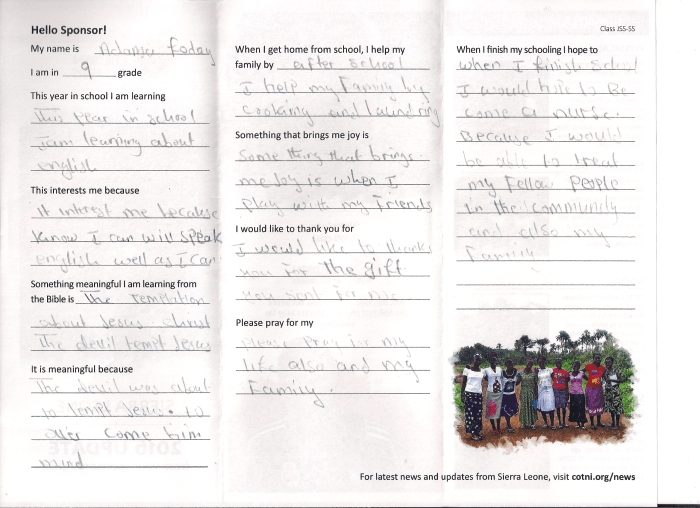 Hello Sponsor!
My name is Adama Foday
I am in 9 grade
This year in school I am learning
This year in school
I am learning about
english
This interests me because
it interest me because
know I can will speak
english well as I can
Something meaningful I am learning from
the Bible is The temptation
about Jesus christ
The devil tempt Jesus
It is meaningful because
The devil was about
to tempt Jesus. to
over come him
mind
When I get home from school, I help my
family by after school
I help my Family by
cooking and laundring
Something that brings me joy is
Some thing that brings
me Joy is when I
play with my Friends
I would like to thank you for
I would like to thank
you for the gift
you sent for me
Please pray for my
please pray for my
life also and my
Family.
Class JSS-SS
When I finish my schooling I hope to
when I finish School
I would hope to Be
come a nurse.
Because I would
be able to treat
my Fellow People
In the community
and also my
Family
For latest news and updates from Sierra Leone, visit cotni.org/news